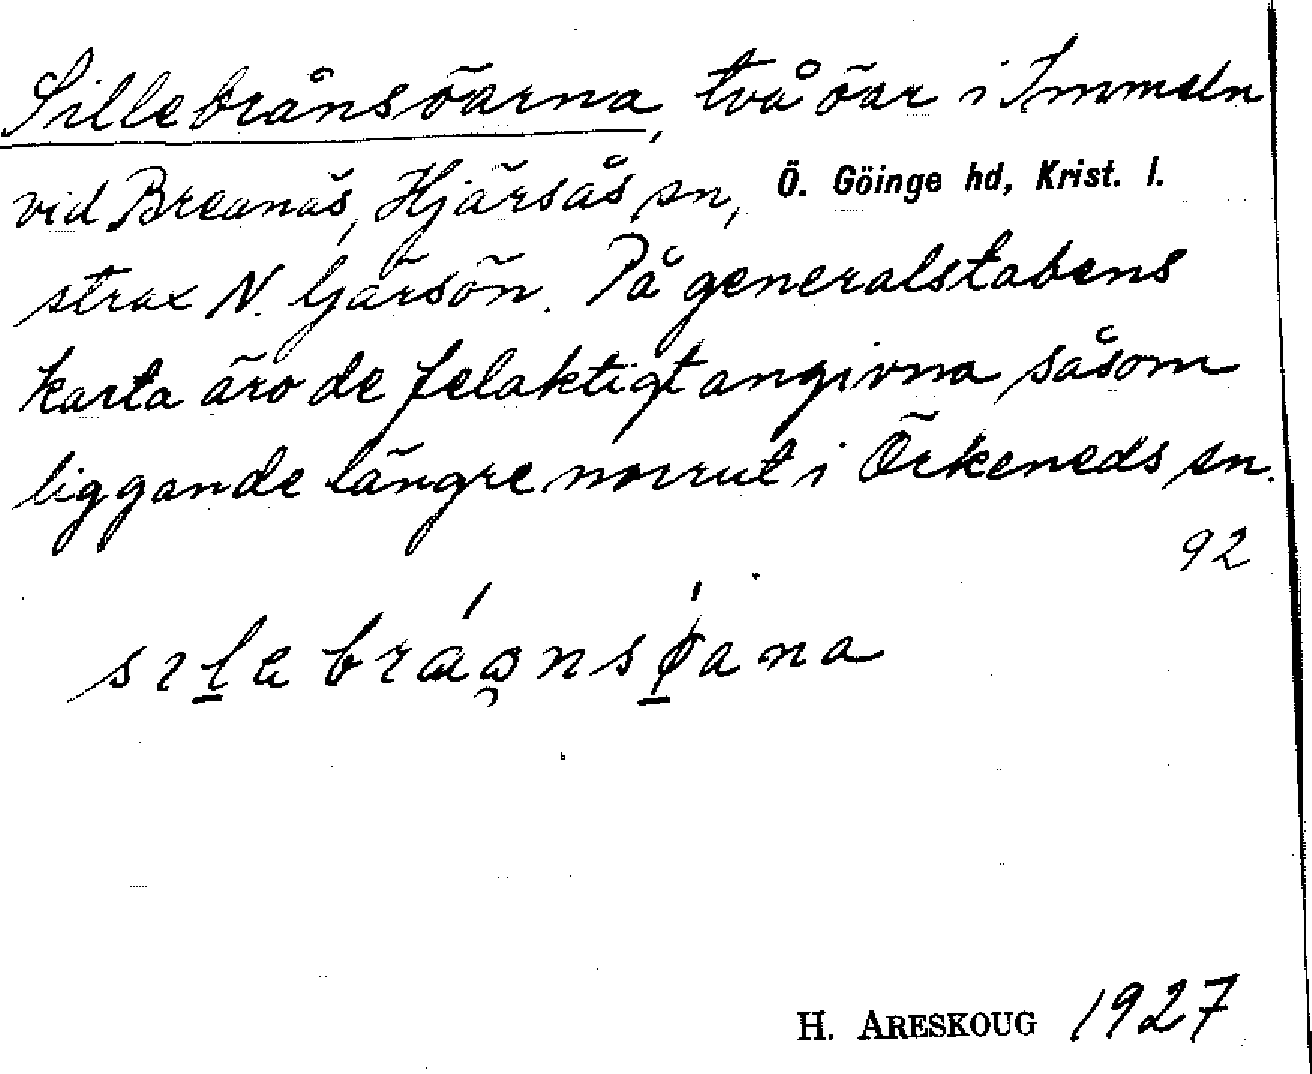 Sillebrånsöarna, två öar i Immeln
vid Breanäs, Hjärsås sn, Ö. Göinge hd, Krist. l.
strax N. Gärsön. På generalstabens
karta äro de felaktigt angivna såsom
liggande längre norrut i Örkeneds sn.
92
sılebráɷnsǿana
H. ARESKOUG 1927